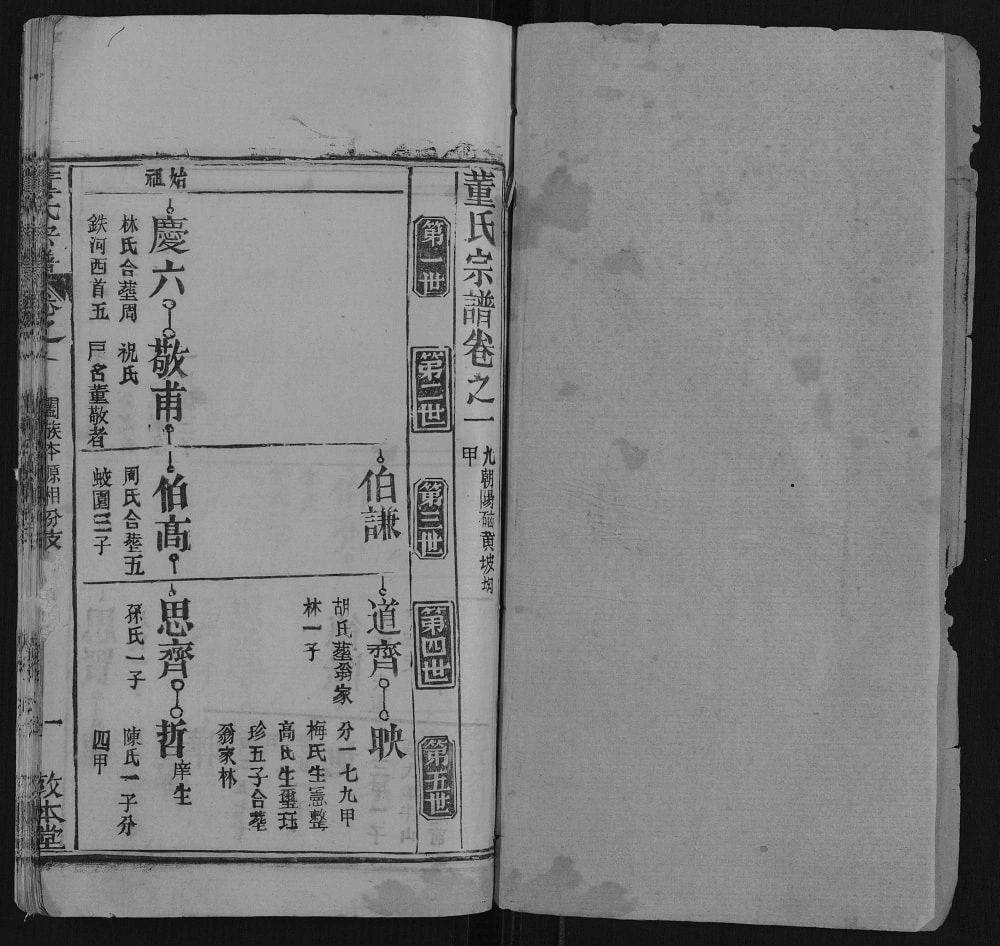 董氏宗譜卷之一
九朝場磁黄坡均
甲
第一世
第二世
第三世
第四世
第五世
伯謙
道齊
胡氏塟翁家
林一子
映
分一七九甲
梅氏生憲整
高氏生璽珏
珍五子合塟
翁家林
始祖
慶六
林氏合塟周
鉄河西首五
敬甫
祝氏
戸名董敬者
伯高
周氏合塟五
蛟園三子
思齊
孫氏一子
哲
庠生
陳氏一子分
四甲
董氏宗譜
卷之一
闔族本源相分支
一
敦本堂